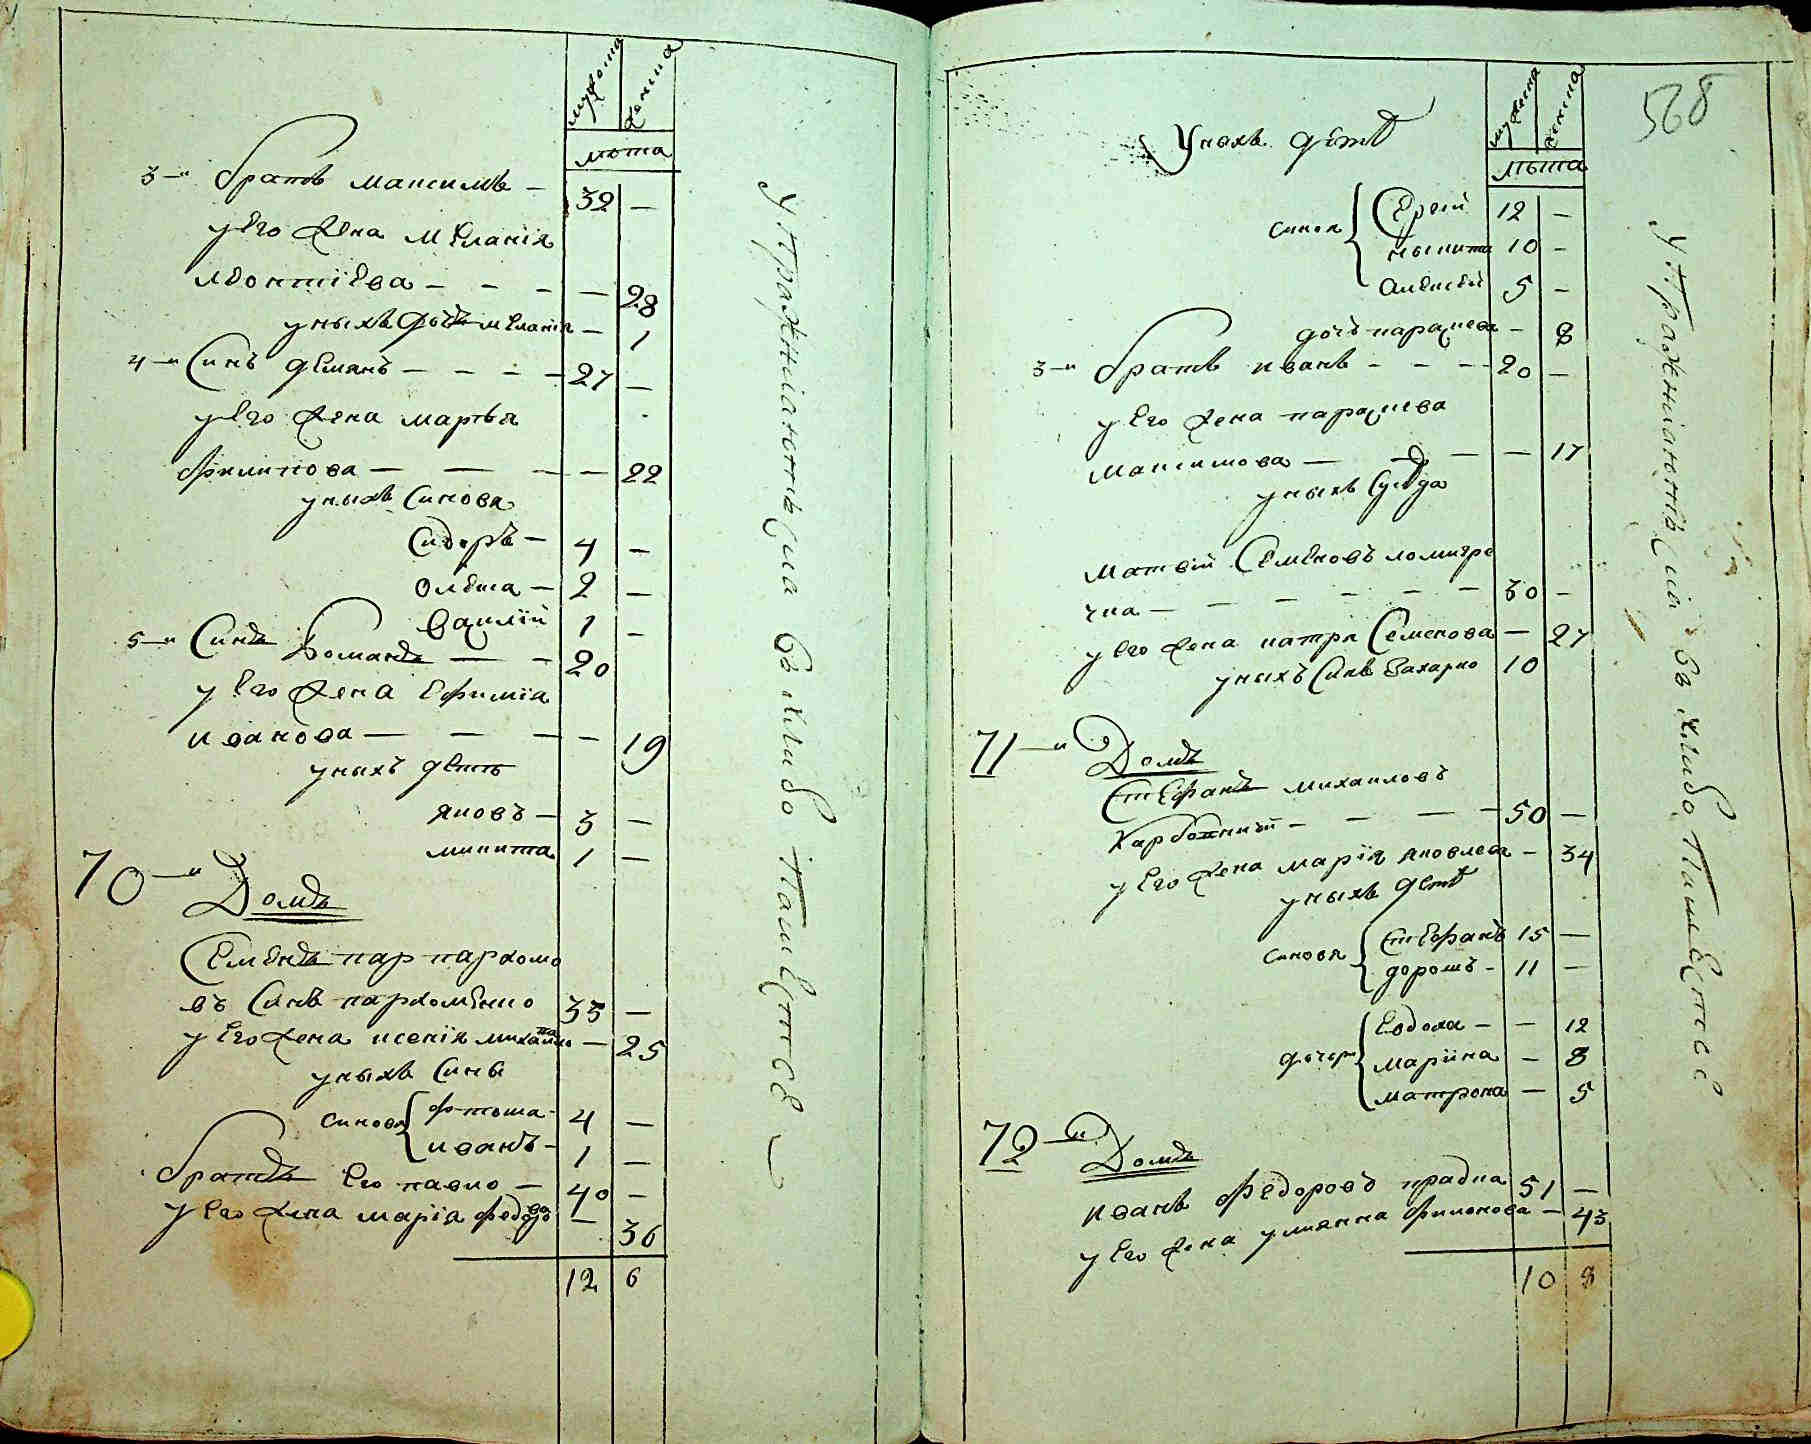 мужеска женска
лѣта
3-й братъ максимъ – 32 –
у Его жена мЕланія
лЕонтіЕва – – – – 28
у ныхъ дочь мЕланія – 1
4-й Синъ дЕмянъ – – – – 27 –
у Его жена марѣя
Филипова – – – – 22
у ныхъ Синовя
Сидоръ – 4 –
олЕша – 2 –
Василій 1 –
5-й Синъ Романъ – – 20
у Его жена Ефимія
иванова – – – – 19
у ныхъ дЕти
яковъ – 3 –
микита 1 –
70-й Домъ
СЕмЕнъ пар пархомо
въ Синъ пархомЕнко 35 –
у Его жена ксенія михайло – 25
у ныхъ Сины
Синовя Ѳ-тоша – 4 –
иванъ – 1 –
братъ Его павло – 40 –
у Его жена марія федорова – 36
12 6
У пражніаютъся въ хлибо ПашЕствЕ
568
мужеска женска
лѣта
У ныхъ дЕти
Синовя Ерєй 12 –
мыкита 10 –
АлЕксЕй 5 –
дочъ парасева – 8
3-й братъ иванъ – – – 20 –
у Его жена парасева
максимова – – – – 17
у ныхъ Сусѣда
матвій СЕмЕновъ ломигре
чка – – – – – – 30 –
у Его жена катря Семенова – 27
у ныхъ Синъ Захарко 10
71-й Домъ
СтЕфанъ михаиловъ
Карбожний – – – – 50 –
у Его жена марія яковлева – 34
у ныхъ дЕти
Синовя СтЕфанъ 15 –
дорошъ – 11 –
дочери Евдоха – – 12
маріина – 8
матрона – 5
72-й Домъ
иванъ ФЕдоровъ прадка 51 –
у Его жена улиянна Филонова – 43
10 8
У пражніаютъся въ хлибо ПашЕствЕ